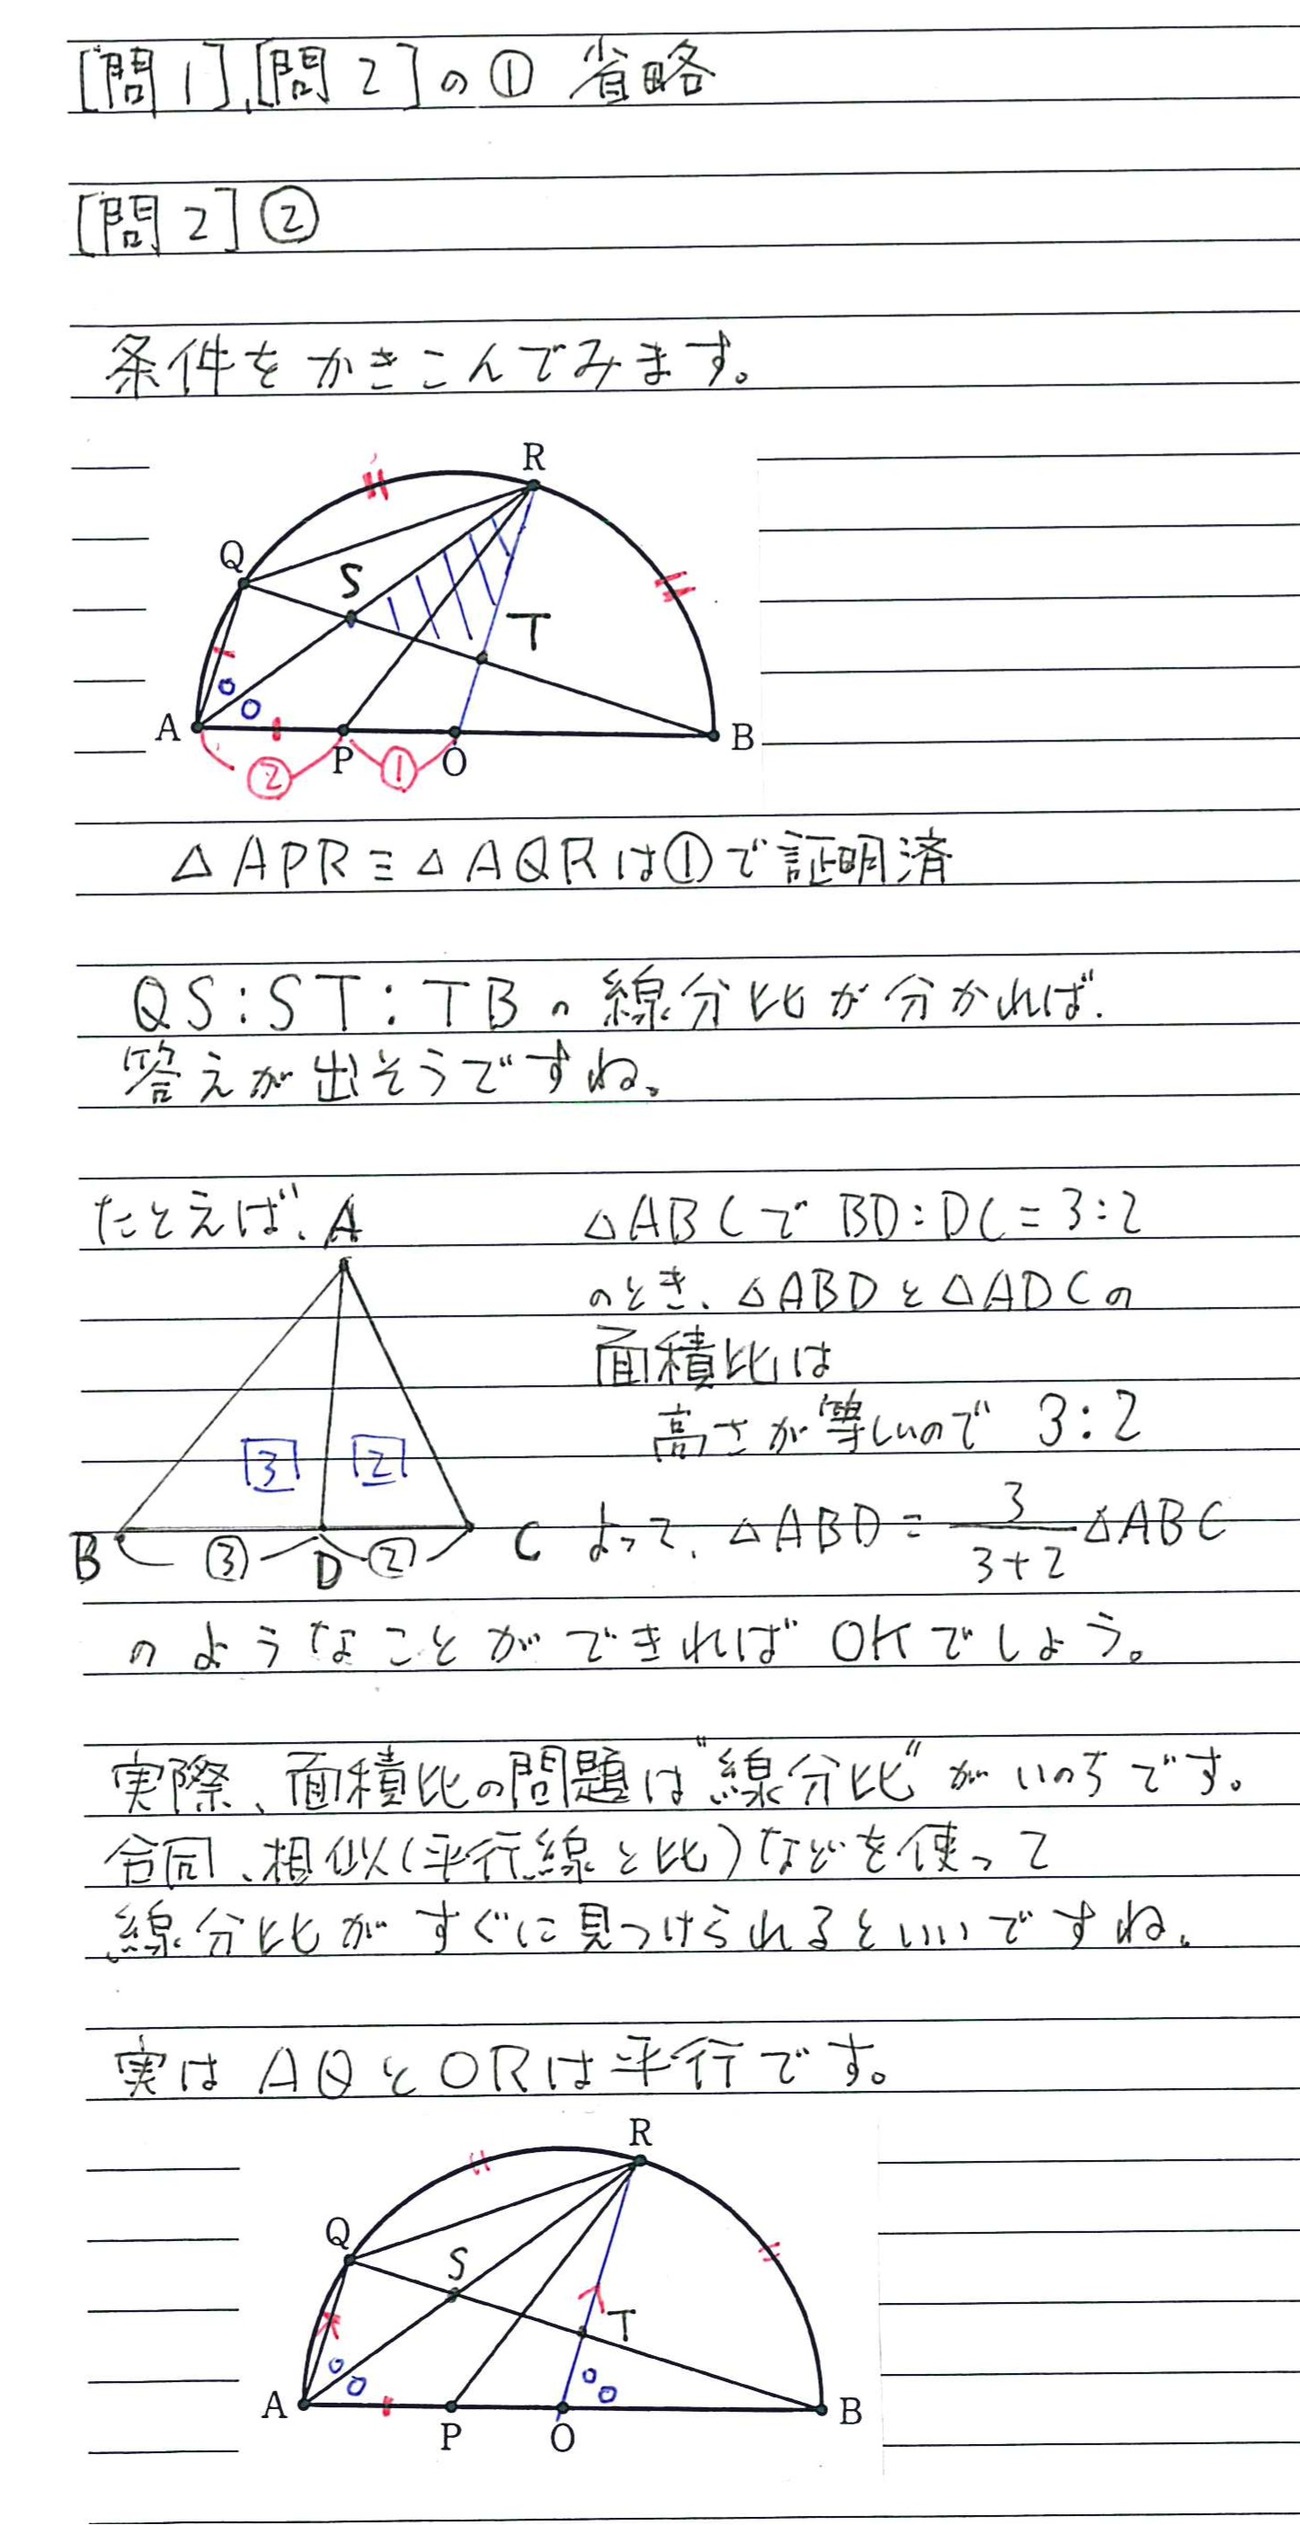 [問1],[問2]の① 省略
[問2]②
条件をかきこんでみます。
R
Q
S
T
A
P
O
B
② ①
△APR≡△AQRは①で証明済
QS:ST:TBの線分比が分かれば、
答えが出そうですね。
たとえば、
A
△ABCで BD:DC=3:2
のとき、△ABDと△ADCの
面積比は
高さが等しいので 3:2
3 2
B ③ D ② C
よって、△ABD = 3/(3+2) △ABC
のようなことができればOKでしょう。
実際、面積比の問題は"線分比"がいのちです。
合同、相似(平行線と比)などを使って
線分比がすぐに見つけられるといいですね。
実はAQとORは平行です。
R
Q
S
T
A
P
O
B